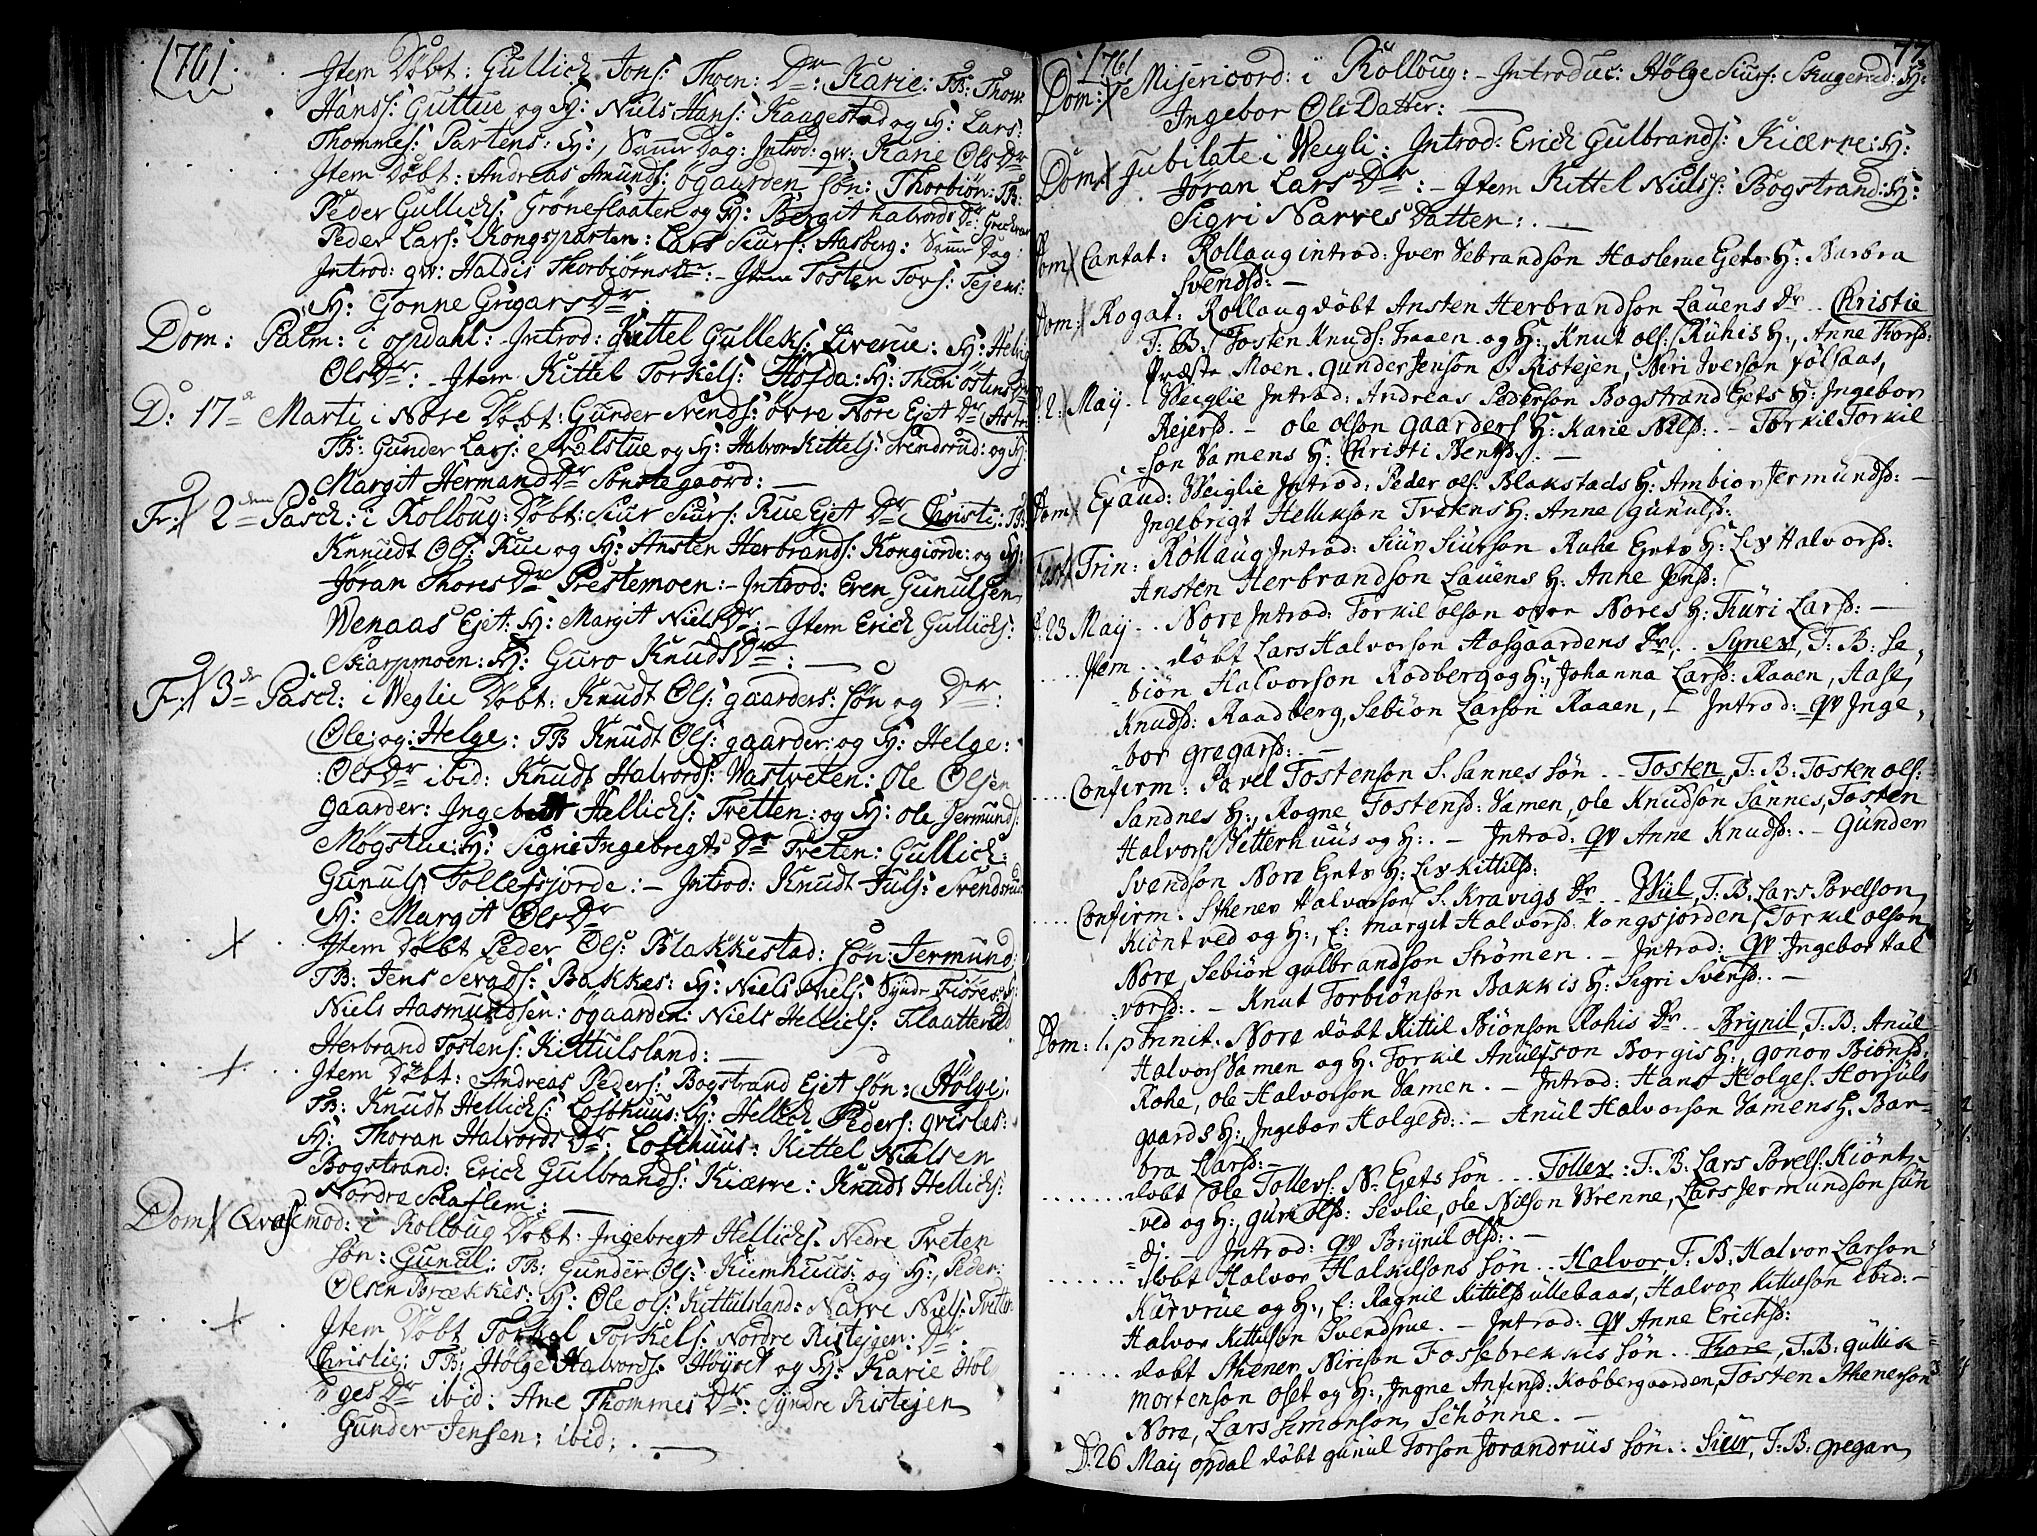 1761.
Item Döbt: Gullich Jons: Thoen: Dr: Karie: TB: Thom:
Hanss: Guttue og H: Niels Hans: Kaagestad og H: Lars:
Thommes: Partens: H:, Samme Dag: Introd: qv: Karie Ols Dr
Item Döbt: Andreas Amunds: øgaarden søn: Thorbiörn: TB:
Peder Gullichs: Grönneflaaten og H: Bergit halvords Dr:
Peder Lars: Kongsparten: Lars Siurs: Aasberg: Samme Dag:
Introd: qv: Haldis Thorbiörns Dr: - Item Tosten Tovs: Tejens:
H: Tonne Grigars Dr:
Dom: Palm: i opdahl: Introd: Kittel Gulleks: Liverue: H: Helvig
Ols Dr: - Item Kittel Torkels: Hofda: H: Thuri östens Dr
D: 17de Marti i Nore Döbt: Gunder Svends: övre Nore Ejet Dr: Astri
TB: Gunder Lars: Nølstue og H: Halvor Kittels: Svendsrud: og H:
Margit Hermand Dr Sönstegaard: —
Fr: 2den Pasch: i Rolloug: Döbt: Siur Siurs: Rue Ejet Dr Christi: TB:
Knnudt Ols: Rue og H: Ansten Herbrands: Kongiorde: og H:
Jöran Thores Dr Prestemoen: - Introd: Even Gunulsen
Wenaas Ejet: H: Margit Niels Dr: - Item Erich Gullichs:
Skarpmoen: H: Guro Knuds Dr: —
Fr: 3de Pasch: i Weglie Döbt: Knudt Ols: gaarders: søn og Dr:
Ole: og: Helge: TB Knudt Ols: gaarder: og H: Helge:
:Ols Dr ibid: Knudt Halvords: Wastveten: Ole Olsen
gaarder: Ingebret Hellichs: Tvetten: og H: ole Jermunds:
Mögstue: H: Signe Ingebregts Dr Tveten: Gullich:
Gunuls: Tollefsjorde: - Introd: Knudt Juls: Svendsrud
H: Margit Ols Dr
Item Döbt Peder Ols: Blakkestad: søn: Jermund:
TB: Jens Bakkes: H: Niels Niels: Syndr Fiöres: H:
Niels Aasmundsen: øgaarden: Niels Hellichs: Flaatterud
Herbrand Tostens: Kittulsland: —
Item Döbt: Andreas Peders: Bogstrand Ejet søn: Hölge:
TB: Knudt Hellichs: Lofthuus: H: Hellich Peders: qvisles:
H: Thoran Halvords Dr: Lofthuus: Kittel Nielsen
Bogstrand: Erich Gulbrands: Kiærre: Knudt Hellichs:
Nordre Schaflem: —
Dom: Qvasimod: i Rolloug Döbt: Ingebregt Hellichs: Nedre Tveten
søn: Gunül: TB: Gunder Ols: Kiemhuus: og H:, Peder:
Olsen Brækkes: H: Ole ols: Kittulsland: Narve Niels: Tvetten
Item Döbt Torkel Torkels: Nordre Ristejgen: Dr
Christie: TB: Hölge Halvords: Höyset og H: Karie Höl
ges Dr ibid: Ane Thommes Dr: Syndre Ristejen
Gunder Jensen: ibid: . —
77
1761
Dom: 2de Misericord: i Rolloug: - Introduc: Hølge Siurs: Skugerud: H:
Ingebor Ols Datter: —
Dom: Jubilate i Weigli: Introd: Erich Gulbrands: Kiærre: H:
Jøran Lars Dr: - Item Kittel Niels: Bogstrand: H:
Sigri Narves Datter: . —
Dom: Cantat: Rollaug introd: Iver Sebrandson Haslerue Gets H: Barbra
Svendsd: —
Dom: Rogat: Rollaug döbt Ansten Herbrandson Lauens Dr.. Christie
T. B. Tosten Knuds: Traaen og H:, Knut ols: Rühis H:, Anne Thorsd:
Præste Moen. Gunder Jenson Ristejen, Niri Iverson follaas,
D: 2: Maij. Weiglie Introd: Andreas Pederson Bogstrand Gets H: Ingebor
Rejersd. - ole olson gaarders H: Karie Nilsd: - Torkil Torkil
-son Vamens H: Christi Bentsd. —
Dom: Exaud: Weiglie Introd: Peder ols: Blakstads H: Ambior Jermundsd: —
Ingebrigt Hellikson Tvetens H: Anne Gunulsd:
Fest: Trin: Rollaug Introd: Siur Siurson Ruhe Gets H: Liv Halvorsd:
Ansten Herbrandson Lauens H: Anne Jensd:
D: 23 Maij .. Nore Introd: Torkil olson over Nores H: Thüri Larsd: —
Item .. döbt Lars Halvorson Aasgaardens Dr .. Synev, T. B. Se,
-biön Halvorson Rodberg og H:, Johanna Larsd: Raaen, Aase,
Knudsd: Raadberg, Sebiön Larson Raaen, - Introd: qv Inge,
-bor Gregarsd: . —
.... Confirm: Povel Tostenson S. Sannes søn .. Tosten, T. B. Tosten ols:
Sandnes H:, Rogne Tostensd: Vamen, ole Knudson Sannes, Tosten
Halvors: Vetterhuus og H: . - Introd: qv Anne Knudsd: . - Gunder
Svendson Nore Gets H: Liv Kittilsd:
.... Confirm. Sthener Halvorson S. Kravigs Dr .. Wiil, T. B. Lars Povelson,
Kiöntved og H:, E: Margit Halvorsd: Kongsjorden, Torkil olson,
Nore, Sebiön Gulbrandson Strömen. - Introd: qv Ingebor Hal
-vorsd: . - Knut Torbiönson Bakkis H: Sigri Svensd: . —
Dom: 1. p Trinit. Nore döbt Kittil Biönson Rohis Dr .. Brynil, T. B. Anül
Halvors: Vamen og H: Torkil Anülfson Borgis H:, Gonor Biönsd:
Rohe, ole Halvorson Vamen. - Introd: Hans Holges: Horjüls
gaards H:, Ingebor Holgesd: . - Anül Halvorson Vamens H: Bar-
bra Larsd: -
....... döbt ole Tollevs: N. Gets søn ... Tollev: T. B: Lars Povels: Kiönt,
-ved og H:, Guri olsd: Sevlie, ole Nilson Wrenne, Lars Jermundson Sün
-dj. - Introd: qv Brynil olsd: . —
....... döbt Halvor Halkilsons søn .. Halvor, T. B: Halvor Larson
Kärvrue og H:, E: Ragnil Kittilsd üllebaas, Halvor Kittilson ibid: —
Halvor Kittilson Svendsrue. - Introd: qv Anne Ericksd:
...... döbt Sthener Nirison Fossebrekkis søn .. Thore, T. B. Güllik
Mortenson Oset og H:, Ingne Anfinsd: Kobbergaarden, Tosten Sthenerson
Nore, Lars Simonson Schönne. —
D: 26 Maij opdal döbt Gunül Torson Jorandruis søn .. Siur, T. B. Gregar